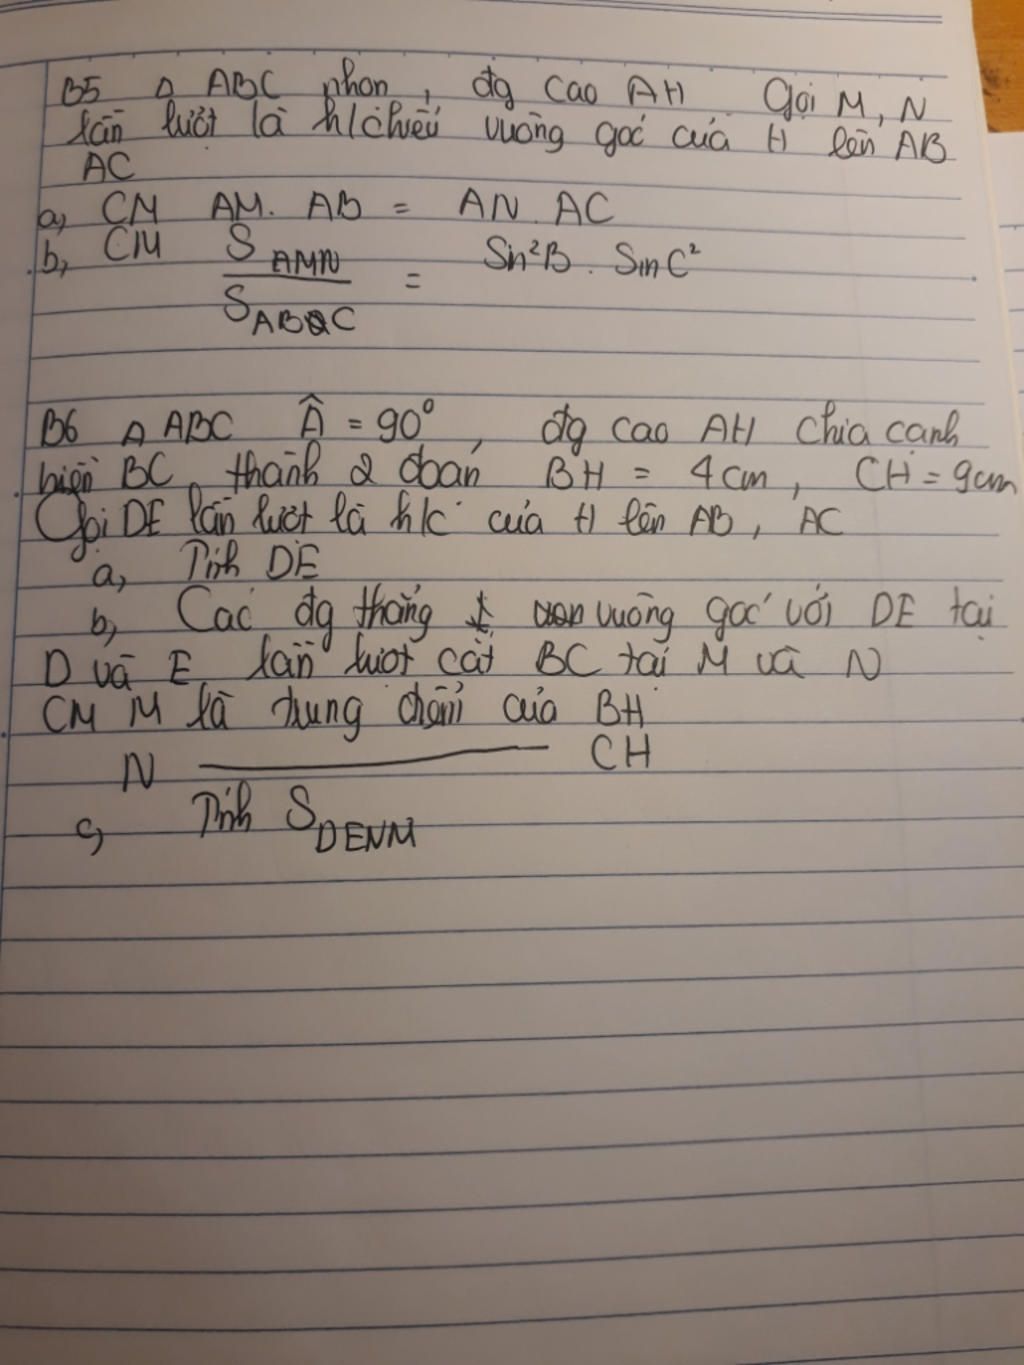 B5 Δ ABC nhọn, đg cao AH Gọi M, N
lần lượt là h/chiếu vuông góc của H lên AB
AC
a, CM AM. AB = AN. AC
b, CM S AMN / S ABC = Sin²B . SinC²
B6 Δ ABC Â = 90°, đg cao AH chia cạnh
huyền BC thành 2 đoạn BH = 4cm, CH = 9cm
Gọi DE lần lượt là h/c của H lên AB, AC
a, Tính DE
b, Các đg thẳng vuông góc với DE tại
D và E lần lượt cắt BC tại M và N
CM M là trung điểm của BH
N ——— CH
c, Tính S DENM